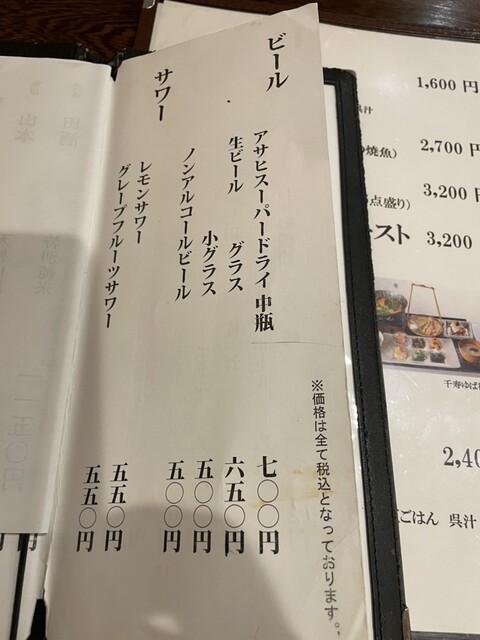 ビール
アサヒスーパードライ 中瓶 七〇〇円
生ビール グラス 六五〇円
小グラス 五〇〇円
ノンアルコールビール 五〇〇円
サワー
レモンサワー 五五〇円
グレープフルーツサワー 五五〇円
※価格は全て税込となっております。
1,600 円
呉汁
焼魚) 2,700 円
点盛り) 3,200 円
スト 3,200
千寿ゆば
2,40
ごはん 呉汁
田酒
山本
特別純米
円
円